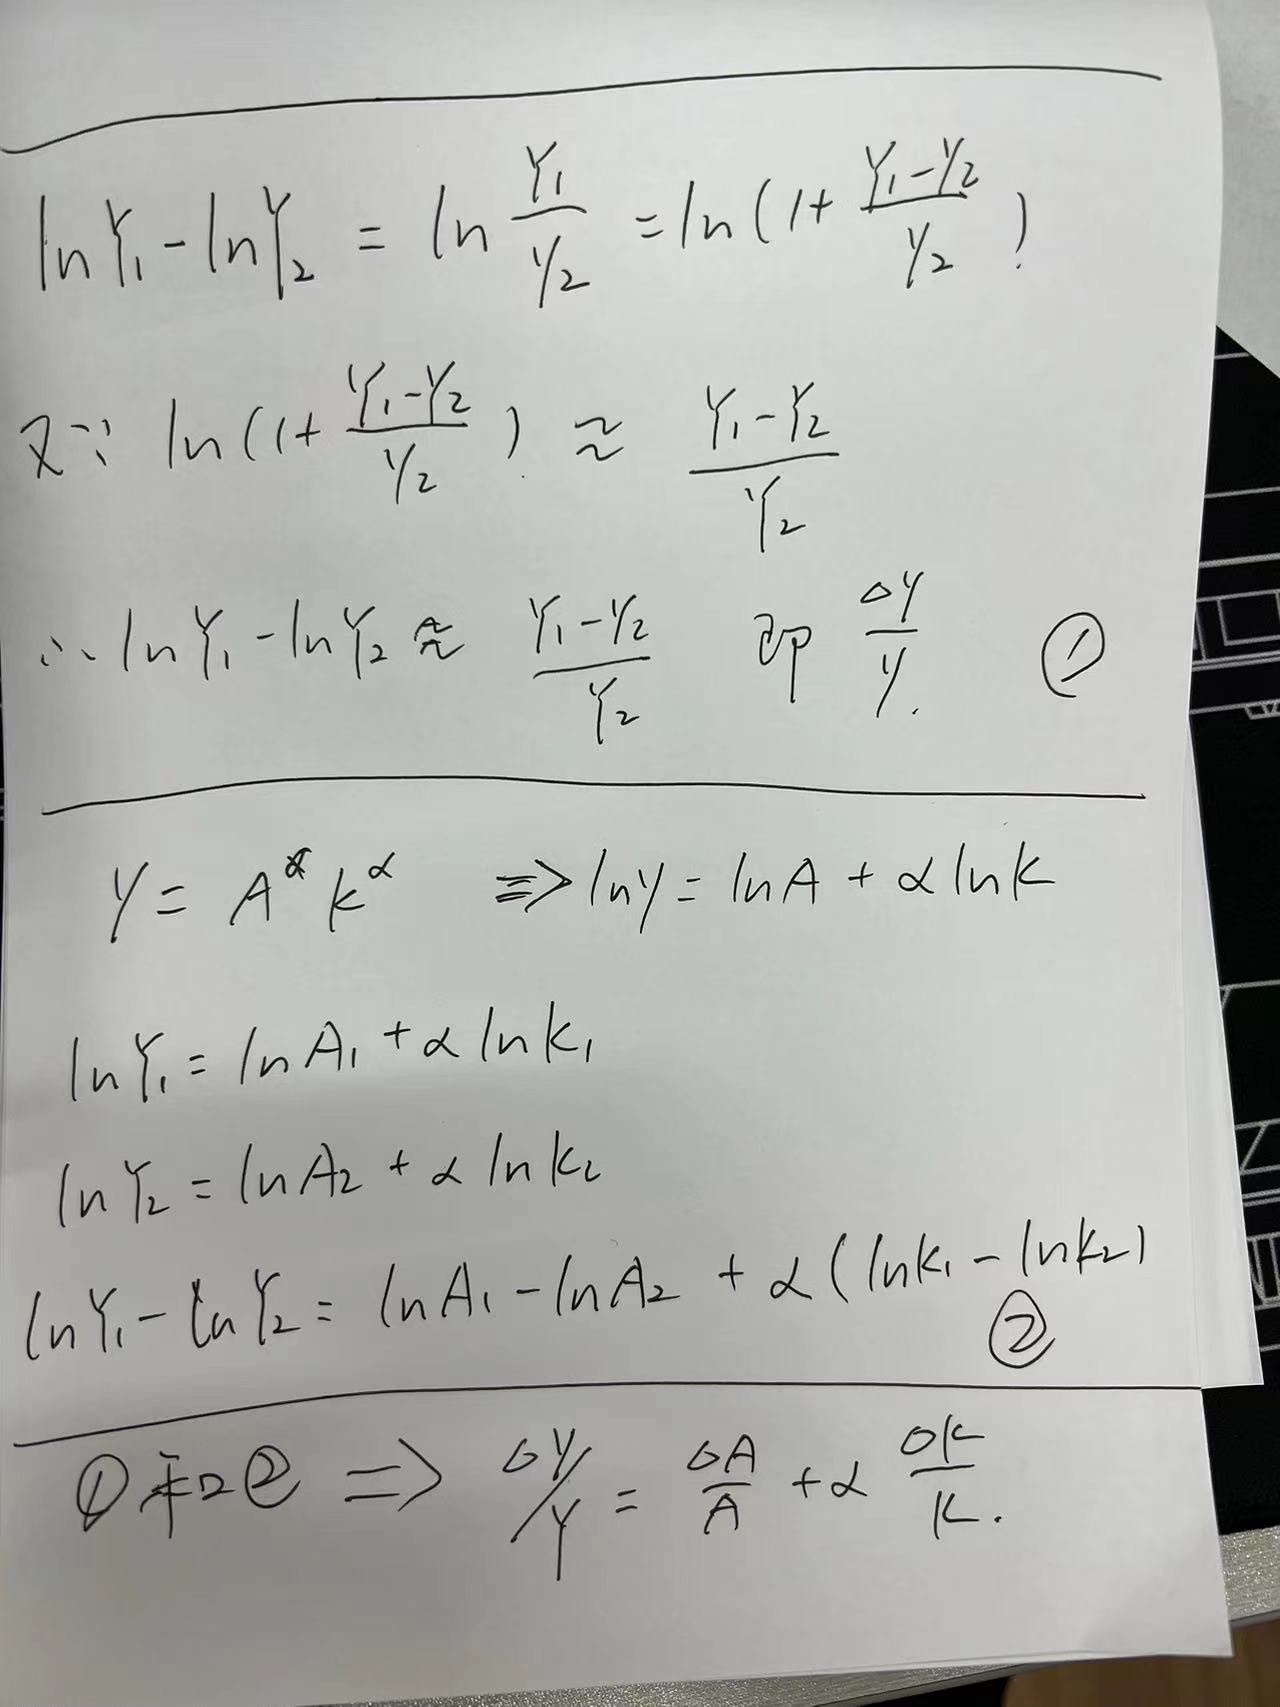 lnY₁ - lnY₂ = ln Y₁/Y₂ = ln(1 + (Y₁-Y₂)/Y₂)
又∵ ln(1 + (Y₁-Y₂)/Y₂) ≈ (Y₁-Y₂)/Y₂
∴ lnY₁ - lnY₂ ≈ (Y₁-Y₂)/Y₂ 即 ΔY/Y. ①
Y = A K^α ⇒ lnY = lnA + α lnK
lnY₁ = lnA₁ + α lnK₁
lnY₂ = lnA₂ + α lnK₂
lnY₁ - lnY₂ = lnA₁ - lnA₂ + α(lnK₁ - lnK₂)
②
①和② ⇒ ΔY/Y = ΔA/A + α ΔK/K.